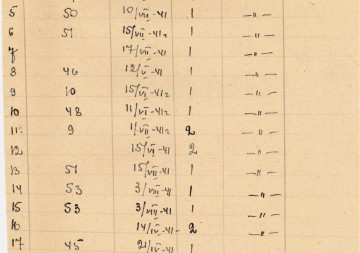 5 50 10/VII-41 1 —"—
6 51 15/VII-41г 1 —"—
7 17/VII-41 1 —"—
8 46 12/V-41 1 —"—
9 10 15/VI-41г 1 —"—
10 48 11/VI-41г 1 —"—
11 9 1/VII-41г 2 —"—
12 15/VI-41 2 —"—
13 51 15/VII-41 1 —"—
14 53 3/VIII-41 1 —"—
15 53 3/VIII-41 1 —"—
16 14/IV-41 2 —"—
17 45 2/IV-41 1 —"—